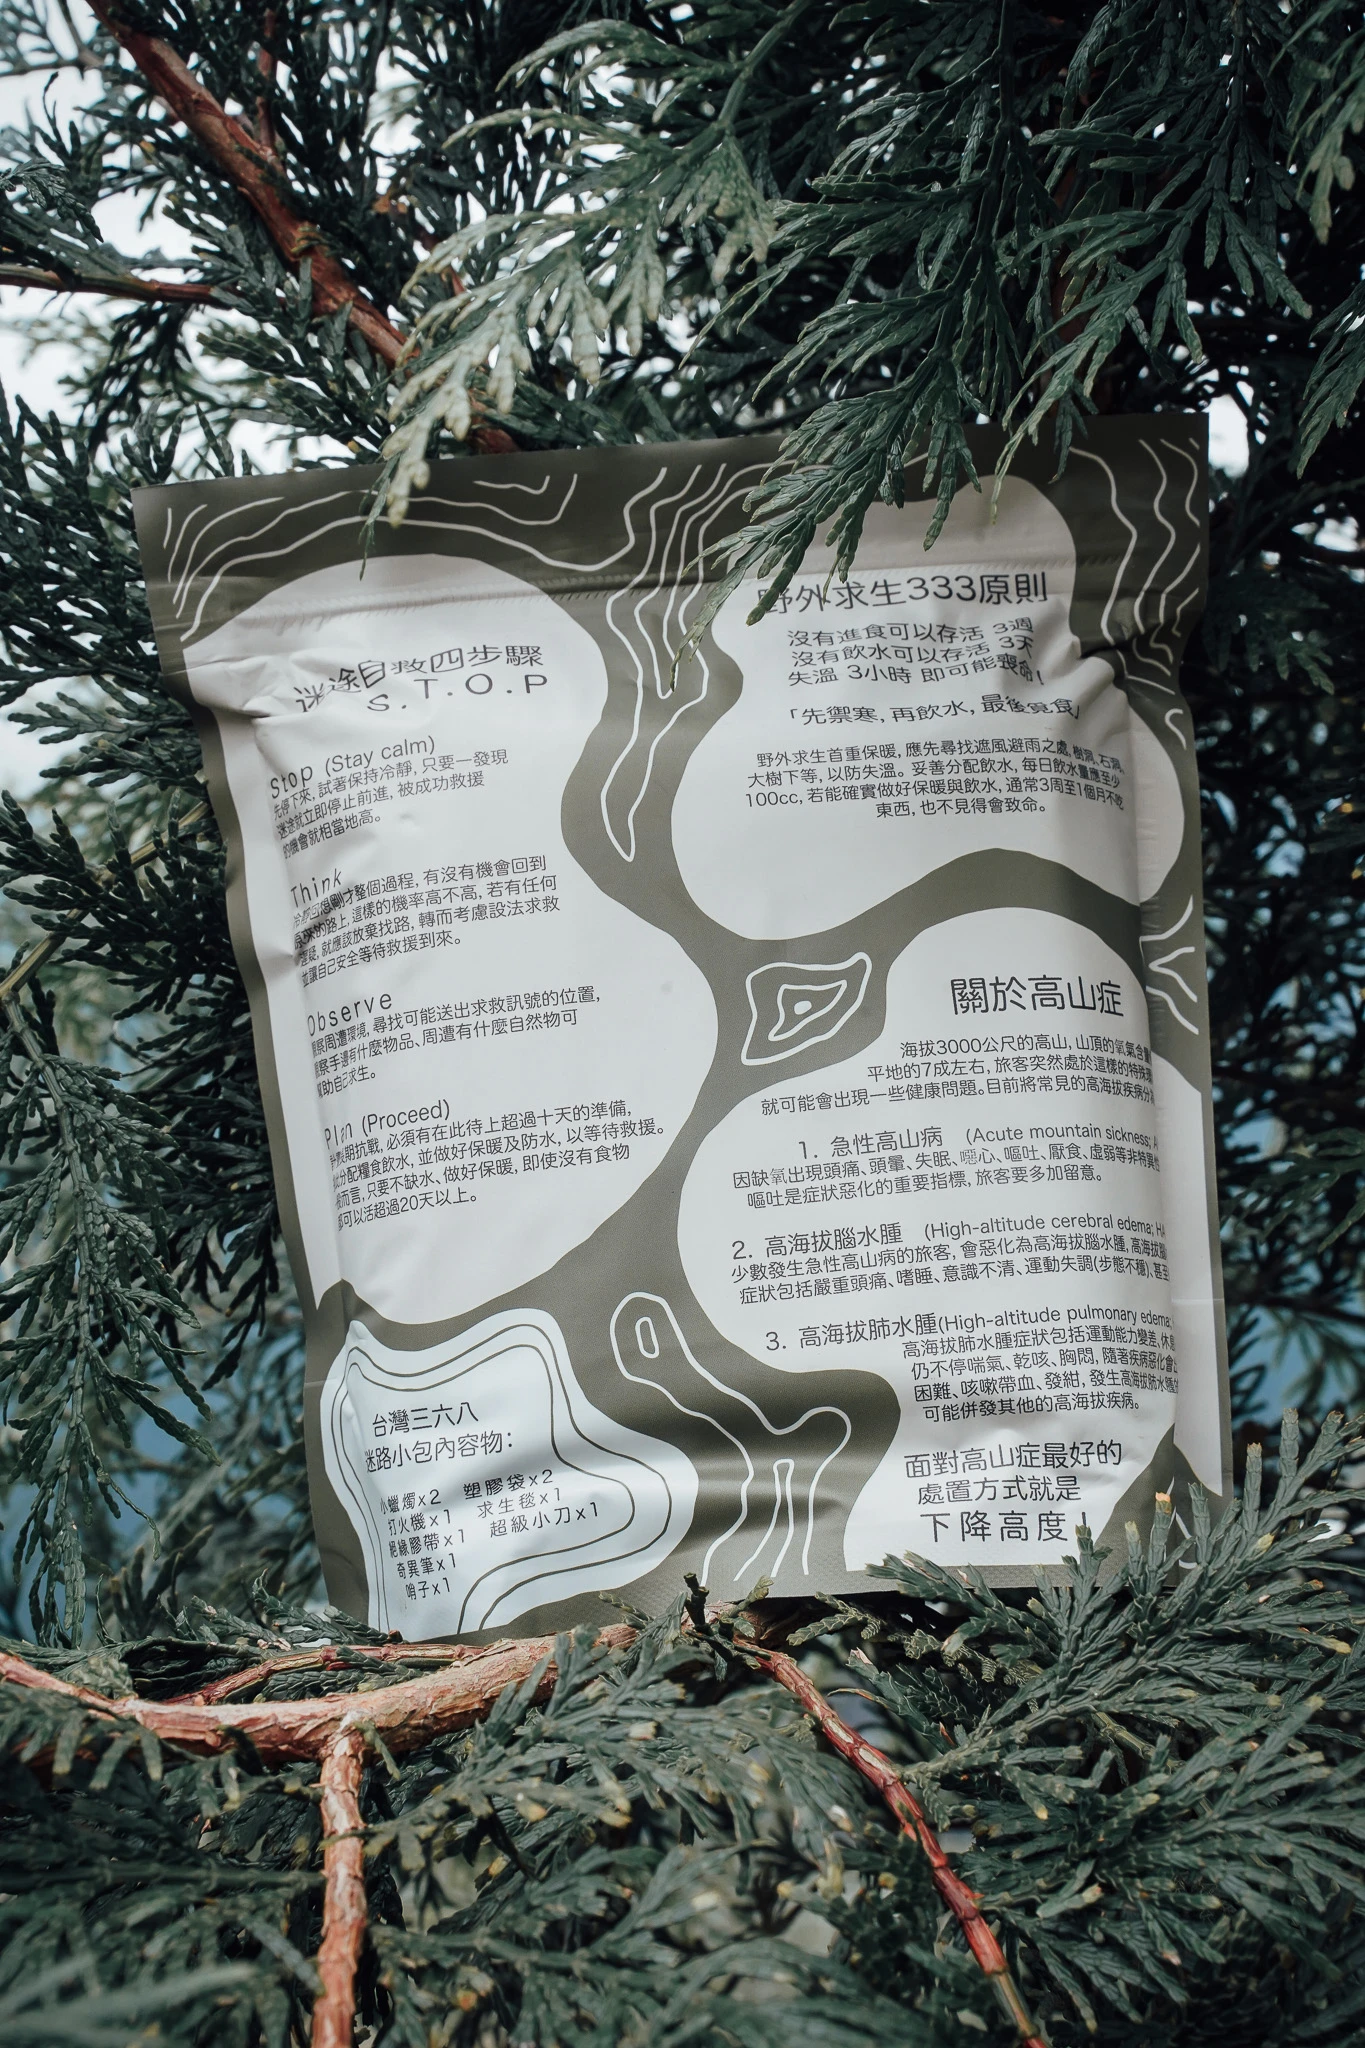 迷途自救四步驟
S.T.O.P
Stop (Stay calm)
先停下來, 試著保持冷靜, 只要一發現
迷途就立即停止前進, 被成功救援
的機會就相當地高。
Think
回想剛才整個過程, 有沒有機會回到
原來的路上, 這樣的機率高不高, 若有任何
遲疑, 就應該放棄找路, 轉而考慮設法求救
並讓自己安全等待救援到來。
Observe
觀察周遭環境, 尋找可能送出求救訊號的位置,
觀察手邊有什麼物品、周遭有什麼自然物可
幫助自己求生。
Plan (Proceed)
長期抗戰, 必須有在此待上超過十天的準備,
分配糧食飲水, 並做好保暖及防水, 以等待救援。
而言, 只要不缺水、做好保暖, 即使沒有食物
都可以活超過20天以上。
野外求生333原則
沒有進食可以存活 3週
沒有飲水可以存活 3天
失溫 3小時 即可能喪命!
「先禦寒, 再飲水, 最後覓食」
野外求生首重保暖, 應先尋找遮風避雨之處, 樹洞、石洞、
大樹下等, 以防失溫。妥善分配飲水, 每日飲水量應至少
100cc, 若能確實做好保暖與飲水, 通常3周至1個月不吃
東西, 也不見得會致命。
關於高山症
海拔3000公尺的高山, 山頂的氧氣含量
平地的7成左右, 旅客突然處於這樣的特殊
就可能會出現一些健康問題。目前將常見的高海拔疾病分
1. 急性高山病 (Acute mountain sickness;
因缺氧出現頭痛、頭暈、失眠、噁心、嘔吐、厭食、虛弱等非特異性
嘔吐是症狀惡化的重要指標, 旅客要多加留意。
2. 高海拔腦水腫 (High-altitude cerebral edema; HA
少數發生急性高山病的旅客, 會惡化為高海拔腦水腫, 高海拔
症狀包括嚴重頭痛、嗜睡、意識不清、運動失調(步態不穩), 甚至
3. 高海拔肺水腫(High-altitude pulmonary edema;
高海拔肺水腫症狀包括運動能力變差、休息
仍不停喘氣、乾咳、胸悶, 隨著疾病惡化會
困難、咳嗽帶血、發紺, 發生高海拔肺水腫
可能併發其他的高海拔疾病。
面對高山症最好的
處置方式就是
下降高度!
台灣三六八
迷路小包內容物:
小蠟燭x2
打火機x1
絕緣膠帶x1
奇異筆x1
哨子x1
塑膠袋x2
求生毯x1
超級小刀x1